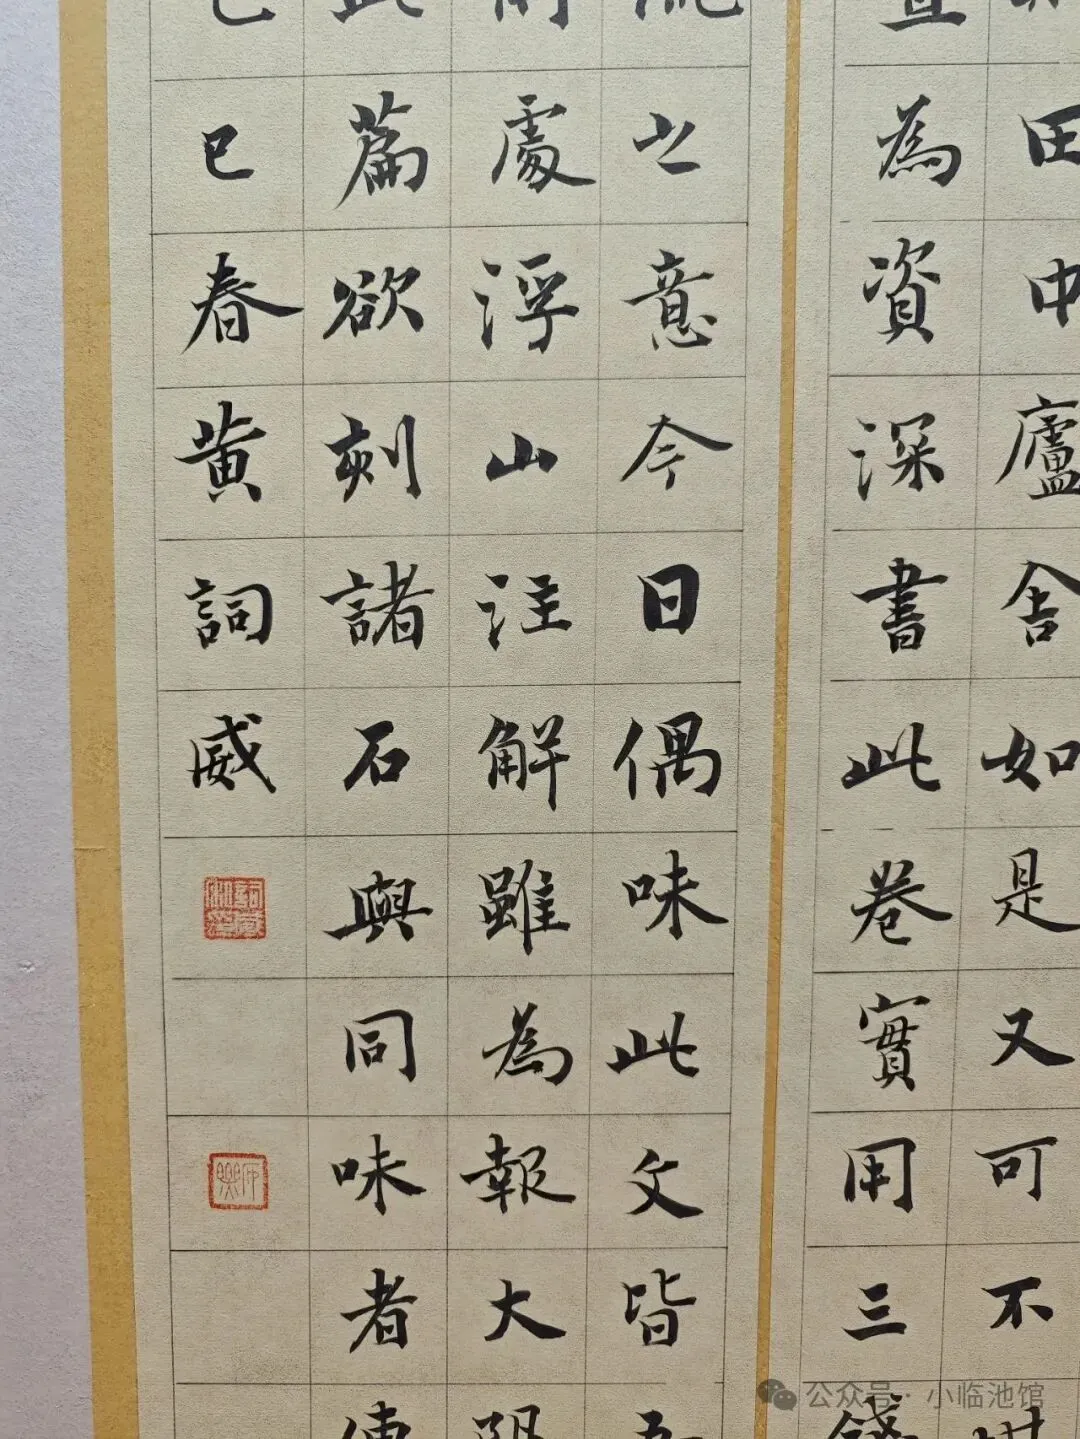 田中廬舍如是又可不
為資深書此卷實用三錢
之意今日偶味此文皆
處浮山注解雖為報大
此篇欲刻諸石與同味者傳
已春黃詞威
公众号·小临池馆